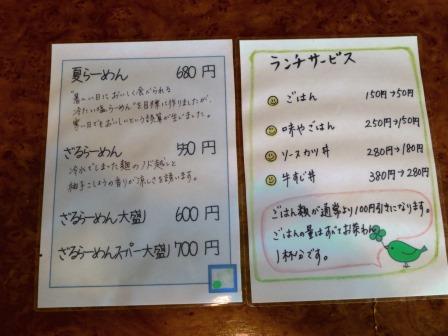 夏らーめん 680円
"暑い日においしく食べられる
冷たい塩らーめん"を目標に作りましたが、
寒い日でもおいしいという誤算が生じました。
ざるらーめん 550円
冷水でしました麺のノド越しと
柚子こしょうの香りが涼しさを誘います。
ざるらーめん大盛り 600円
ざるらーめんスーパー大盛り 700円
ランチサービス
ごはん 150円→50円
味やごはん 250円→150円
ソースカツ丼 280円→180円
牛すじ丼 380円→280円
ごはん類が通常より100円引きになります。
ごはんの量はすべてお茶わん
1杯分です。